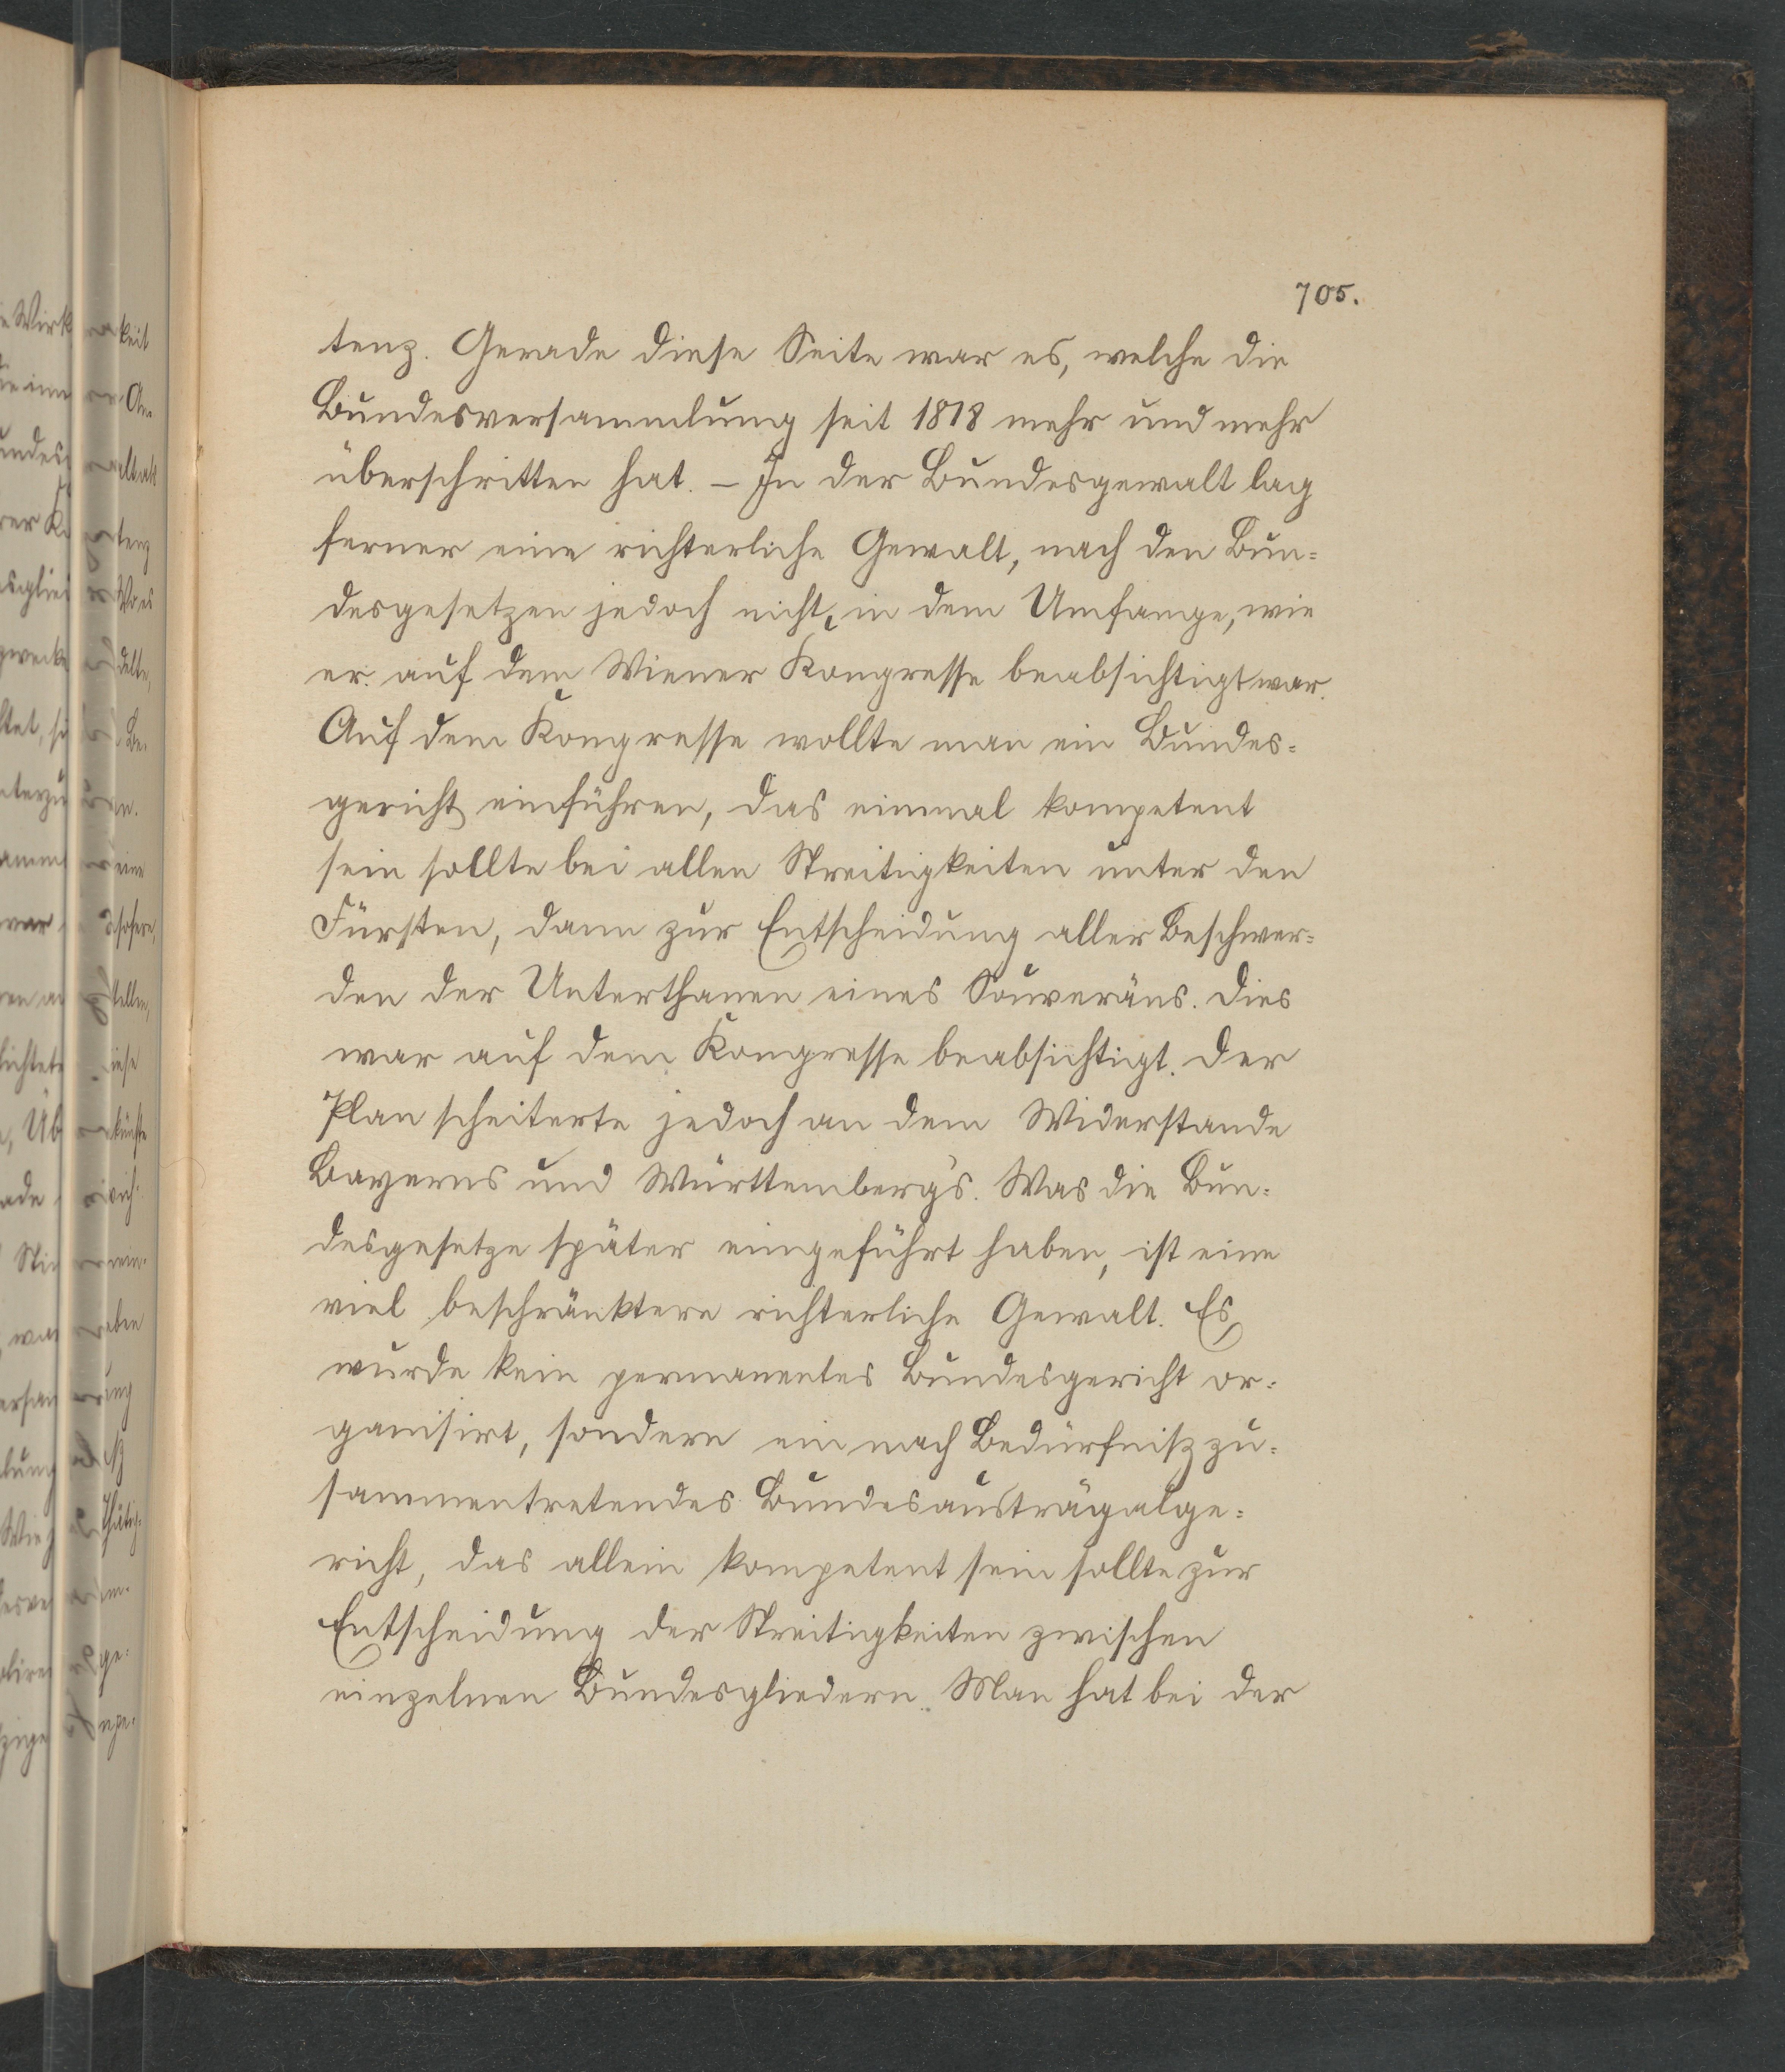 705.
tenz. Gerade diese Seite war es, welche die
Bundesversammlung seit 1818 mehr und mehr
überschritten hat. – In der Bundesgewalt lag
ferner eine richterliche Gewalt, nach den Bun-
desgesetzen jedoch nicht in dem Umfange, wie
er auf dem Wiener Kongresse beabsichtigt war.
Auf dem Kongresse wollte man ein Bundes-
gericht einführen, das einmal kompetent
sein sollte bei allen Streitigkeiten unter den
Fürsten, dann zur Entscheidung aller Beschwer-
den der Unterthanen eines Souveräns. Dies
war auf dem Kongresse beabsichtigt. Der
Plan scheiterte jedoch an dem Widerstande
Bayerns und Württemberg's. Was die Bun-
desgesetze später eingeführt haben, ist eine
viel beschränktere richterliche Gewalt. Es
wurde kein permanentes Bundesgericht or-
ganisirt, sondern ein nach Bedürfniß zu-
sammentretendes Bundesausträgalge-
richt, das allein kompetent sein sollte zur
Entscheidung der Streitigkeiten zwischen
einzelnen Bundesgliedern. Man hat bei der